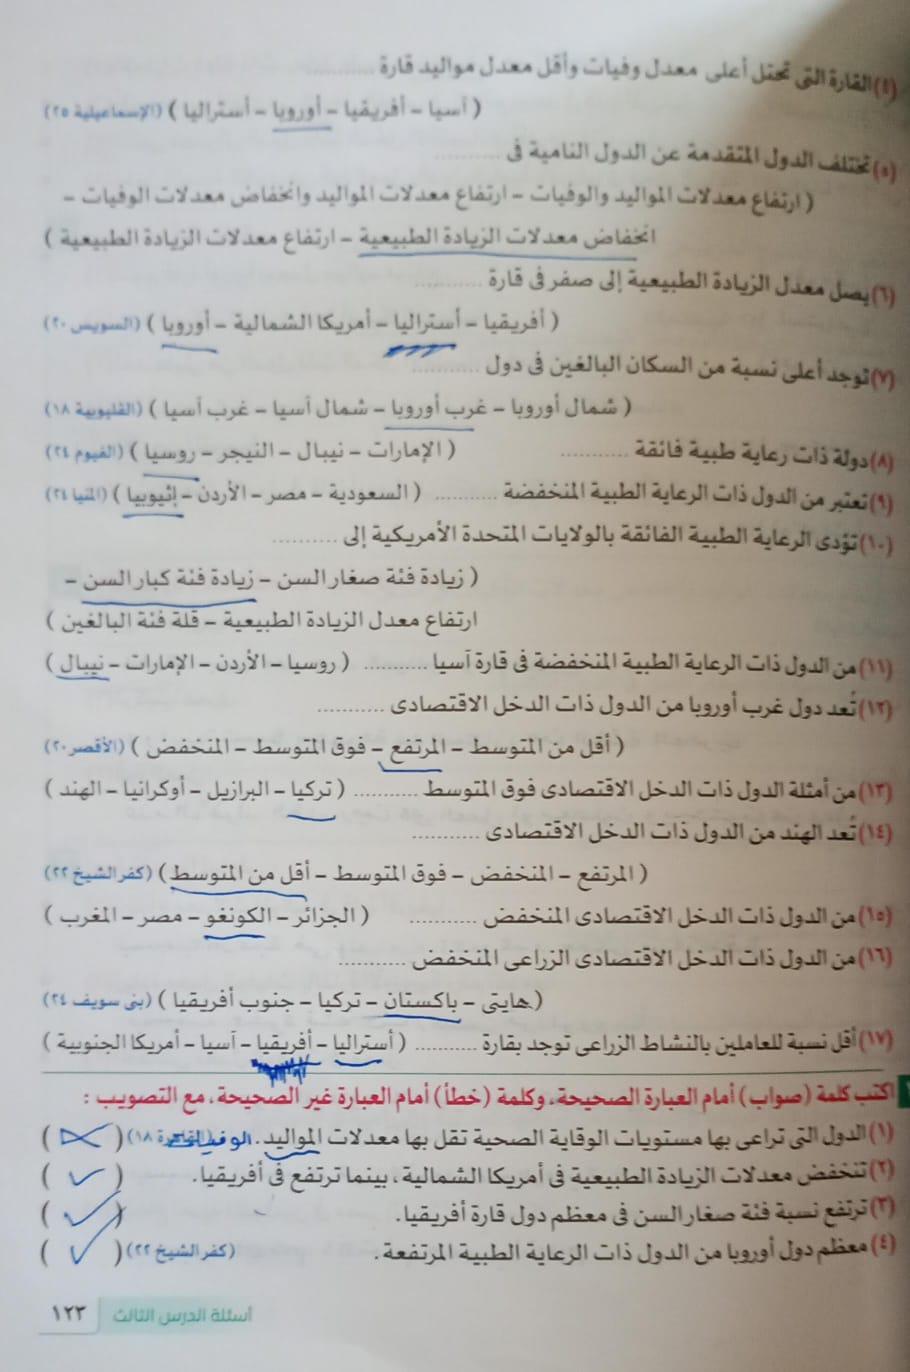 (٤) القارة التى تحتل أعلى معدل وفيات وأقل معدل مواليد قارة ...........
( آسيا – أفريقيا – أوروبا – أستراليا ) (الإسماعيلية ٢٥)
(٥) تختلف الدول المتقدمة عن الدول النامية فى ...........
( ارتفاع معدلات المواليد والوفيات – ارتفاع معدلات المواليد وانخفاض معدلات الوفيات –
انخفاض معدلات الزيادة الطبيعية – ارتفاع معدلات الزيادة الطبيعية )
(٦) يصل معدل الزيادة الطبيعية إلى صفر فى قارة ...........
( أفريقيا – أستراليا – أمريكا الشمالية – أوروبا ) (السويس ٢٠)
(٧) توجد أعلى نسبة من السكان البالغين فى دول ...........
( شمال أوروبا – غرب أوروبا – شمال آسيا – غرب آسيا ) (القليوبية ١٨)
(٨) دولة ذات رعاية طبية فائقة ........... ( الإمارات – نيبال – النيجر – روسيا ) (الفيوم ٢٤)
(٩) تعتبر من الدول ذات الرعاية الطبية المنخفضة ........... ( السعودية – مصر – الأردن – إثيوبيا ) (المنيا ٢٤)
(١٠) تؤدى الرعاية الطبية الفائقة بالولايات المتحدة الأمريكية إلى ...........
( زيادة فئة صغار السن – زيادة فئة كبار السن –
ارتفاع معدل الزيادة الطبيعية – قلة فئة البالغين )
(١١) من الدول ذات الرعاية الطبية المنخفضة فى قارة آسيا ........... ( روسيا – الأردن – الإمارات – نيبال )
(١٢) تُعد دول غرب أوروبا من الدول ذات الدخل الاقتصادى ...........
( أقل من المتوسط – المرتفع – فوق المتوسط – المنخفض ) (الأقصر ٢٠)
(١٣) من أمثلة الدول ذات الدخل الاقتصادى فوق المتوسط ........... ( تركيا – البرازيل – أوكرانيا – الهند )
(١٤) تُعد الهند من الدول ذات الدخل الاقتصادى ...........
( المرتفع – المنخفض – فوق المتوسط – أقل من المتوسط ) (كفر الشيخ ٢٢)
(١٥) من الدول ذات الدخل الاقتصادى المنخفض ........... ( الجزائر – الكونغو – مصر – المغرب )
(١٦) من الدول ذات الدخل الاقتصادى الزراعى المنخفض ...........
( هايتى – باكستان – تركيا – جنوب أفريقيا ) (بنى سويف ٢٤)
(١٧) أقل نسبة للعاملين بالنشاط الزراعى توجد بقارة ........... ( أستراليا – أفريقيا – آسيا – أمريكا الجنوبية )
اكتب كلمة (صواب) أمام العبارة الصحيحة، وكلمة (خطأ) أمام العبارة غير الصحيحة، مع التصويب :
(١) الدول التى تراعى بها مستويات الوقاية الصحية تقل بها معدلات المواليد. الوفيات (القاهرة ١٨) ( ✗ )
(٢) تنخفض معدلات الزيادة الطبيعية فى أمريكا الشمالية، بينما ترتفع فى أفريقيا. ( ✓ )
(٣) ترتفع نسبة فئة صغار السن فى معظم دول قارة أفريقيا. ( ✓ )
(٤) معظم دول أوروبا من الدول ذات الرعاية الطبية المرتفعة. (كفر الشيخ ٢٢) ( ✓ )
أسئلة الدرس الثالث ١٢٣